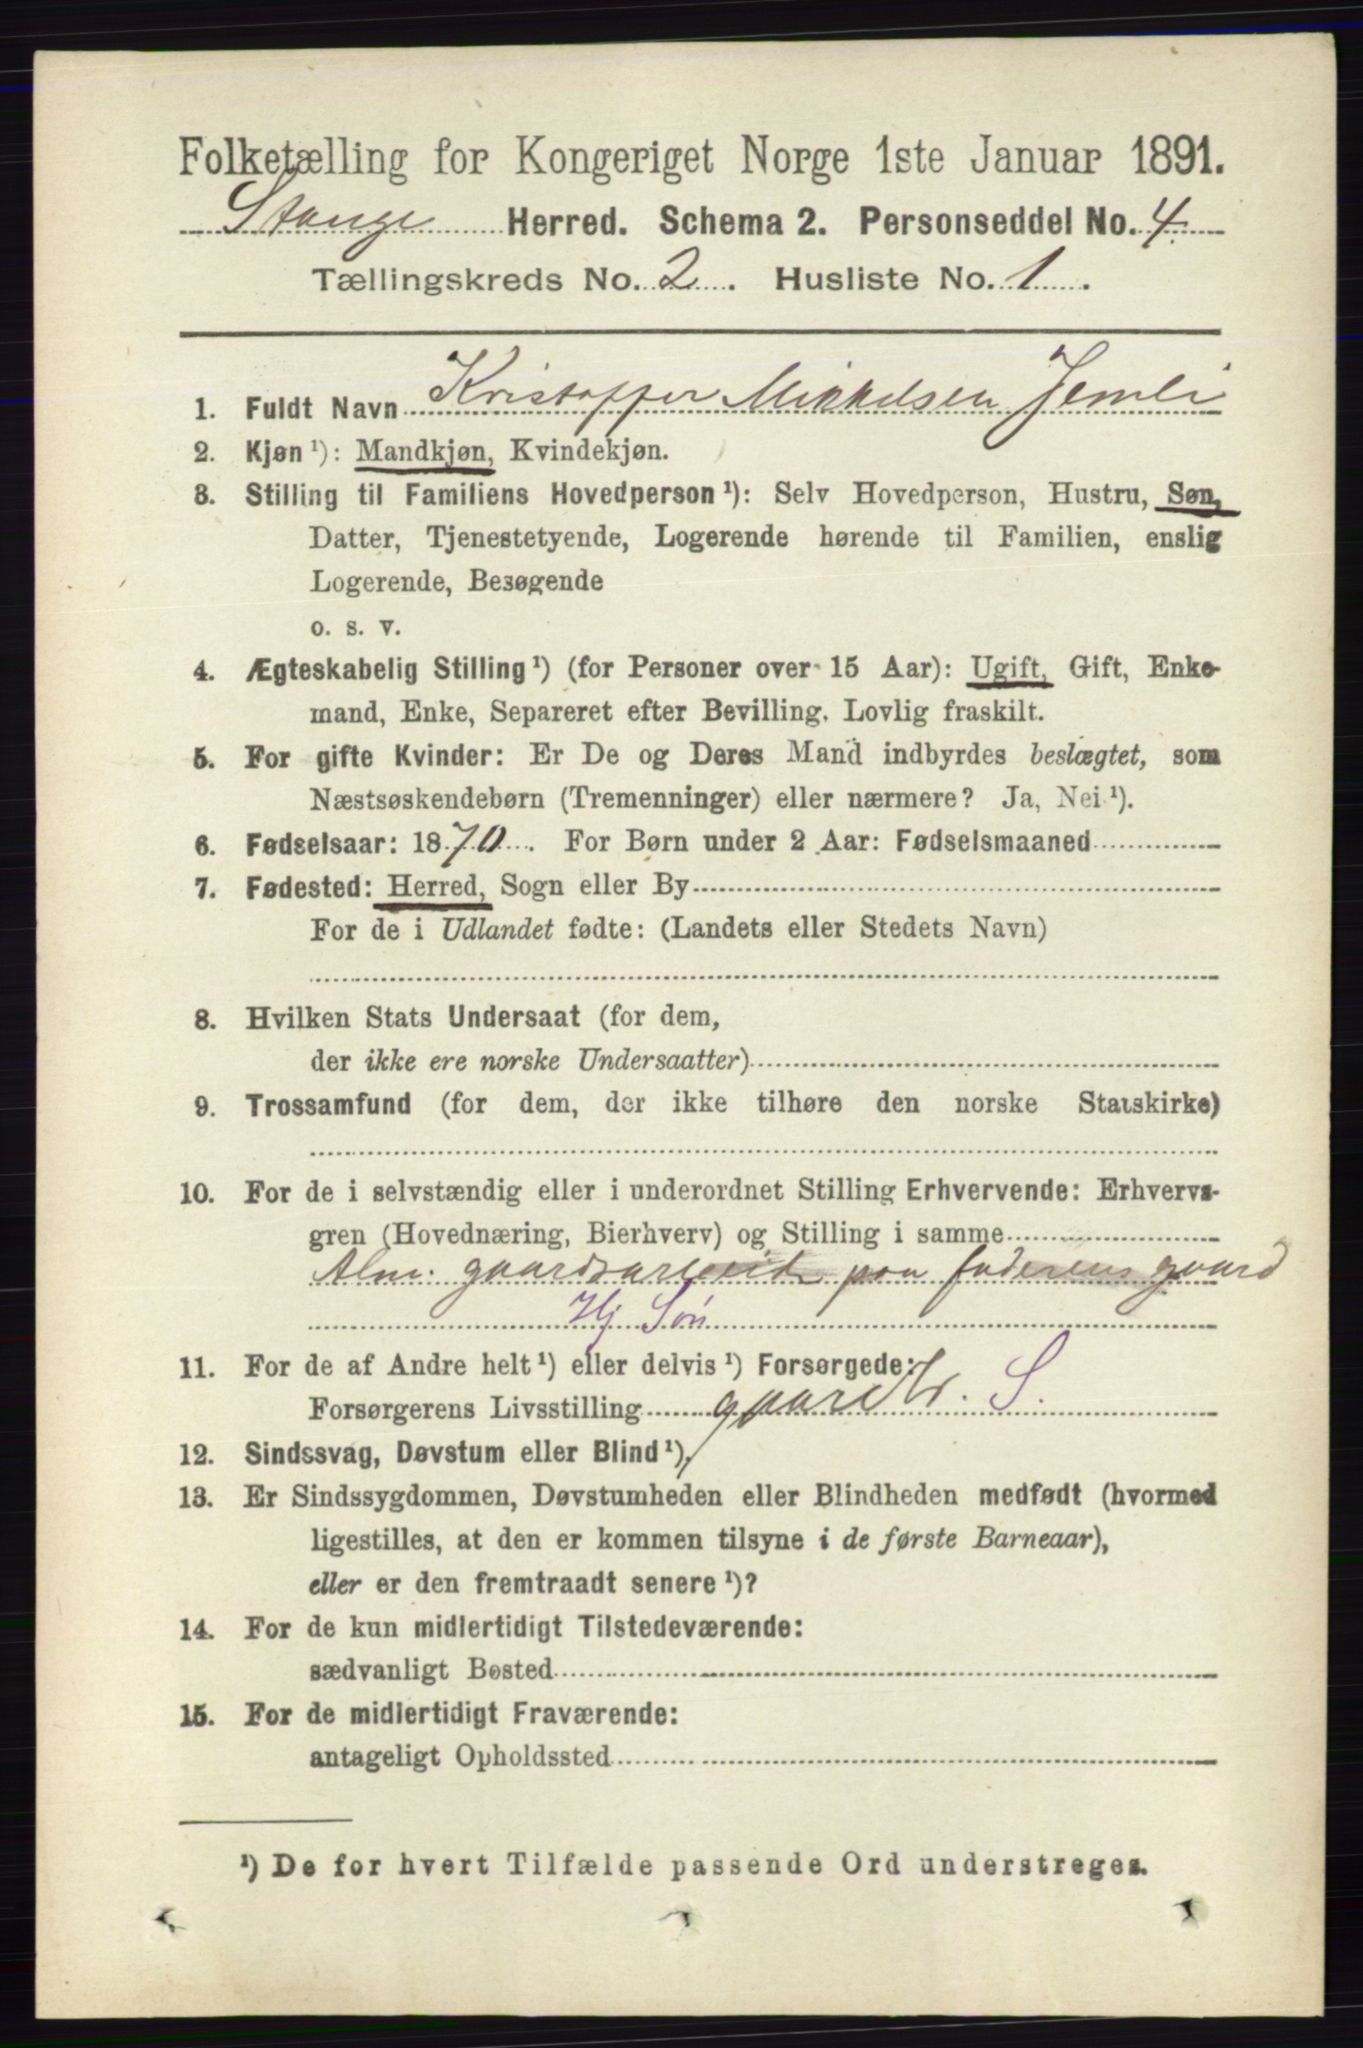 Folketælling for Kongeriget Norge 1ste Januar 1891.
Stange Herred. Schema 2. Personseddel No. 4.
Tællingskreds No. 2. Husliste No. 1.
1. Fuldt Navn Kristoffer Mikkelsen Jemli
2. Kjøn ¹): Mandkjøn, Kvindekjøn.
3. Stilling til Familiens Hovedperson ¹): Selv Hovedperson, Hustru, Søn,
Datter, Tjenestetyende, Logerende hørende til Familien, enslig
Logerende, Besøgende
o. s. v.
4. Ægteskabelig Stilling ¹) (for Personer over 15 Aar): Ugift, Gift, Enke-
mand, Enke, Separeret efter Bevilling. Lovlig fraskilt.
5. For gifte Kvinder: Er De og Deres Mand indbyrdes beslægtet, som
Næstsøskendebørn (Tremenninger) eller nærmere? Ja, Nei ¹).
6. Fødselsaar: 1870. For Børn under 2 Aar: Fødselsmaaned
7. Fødested: Herred, Sogn eller By
For de i Udlandet fødte: (Landets eller Stedets Navn)
8. Hvilken Stats Undersaat (for dem,
der ikke ere norske Undersaatter)
9. Trossamfund (for dem, der ikke tilhøre den norske Statskirke)
10. For de i selvstændig eller i underordnet Stilling Erhvervende: Erhvervs-
gren (Hovednæring, Bierhverv) og Stilling i samme
Alm. gaardsarbeide paa faderens gaard
Hj Søn
11. For de af Andre helt ¹) eller delvis ¹) Forsørgede:
Forsørgerens Livsstilling gaardbr. S.
12. Sindssvag, Døvstum eller Blind ¹),
13. Er Sindssygdommen, Døvstumheden eller Blindheden medfødt (hvormed
ligestilles, at den er kommen tilsyne i de første Barneaar),
eller er den fremtraadt senere ¹)?
14. For de kun midlertidigt Tilstedeværende:
sædvanligt Bosted
15. For de midlertidigt Fraværende:
antageligt Opholdssted
¹) De for hvert Tilfælde passende Ord understreges.